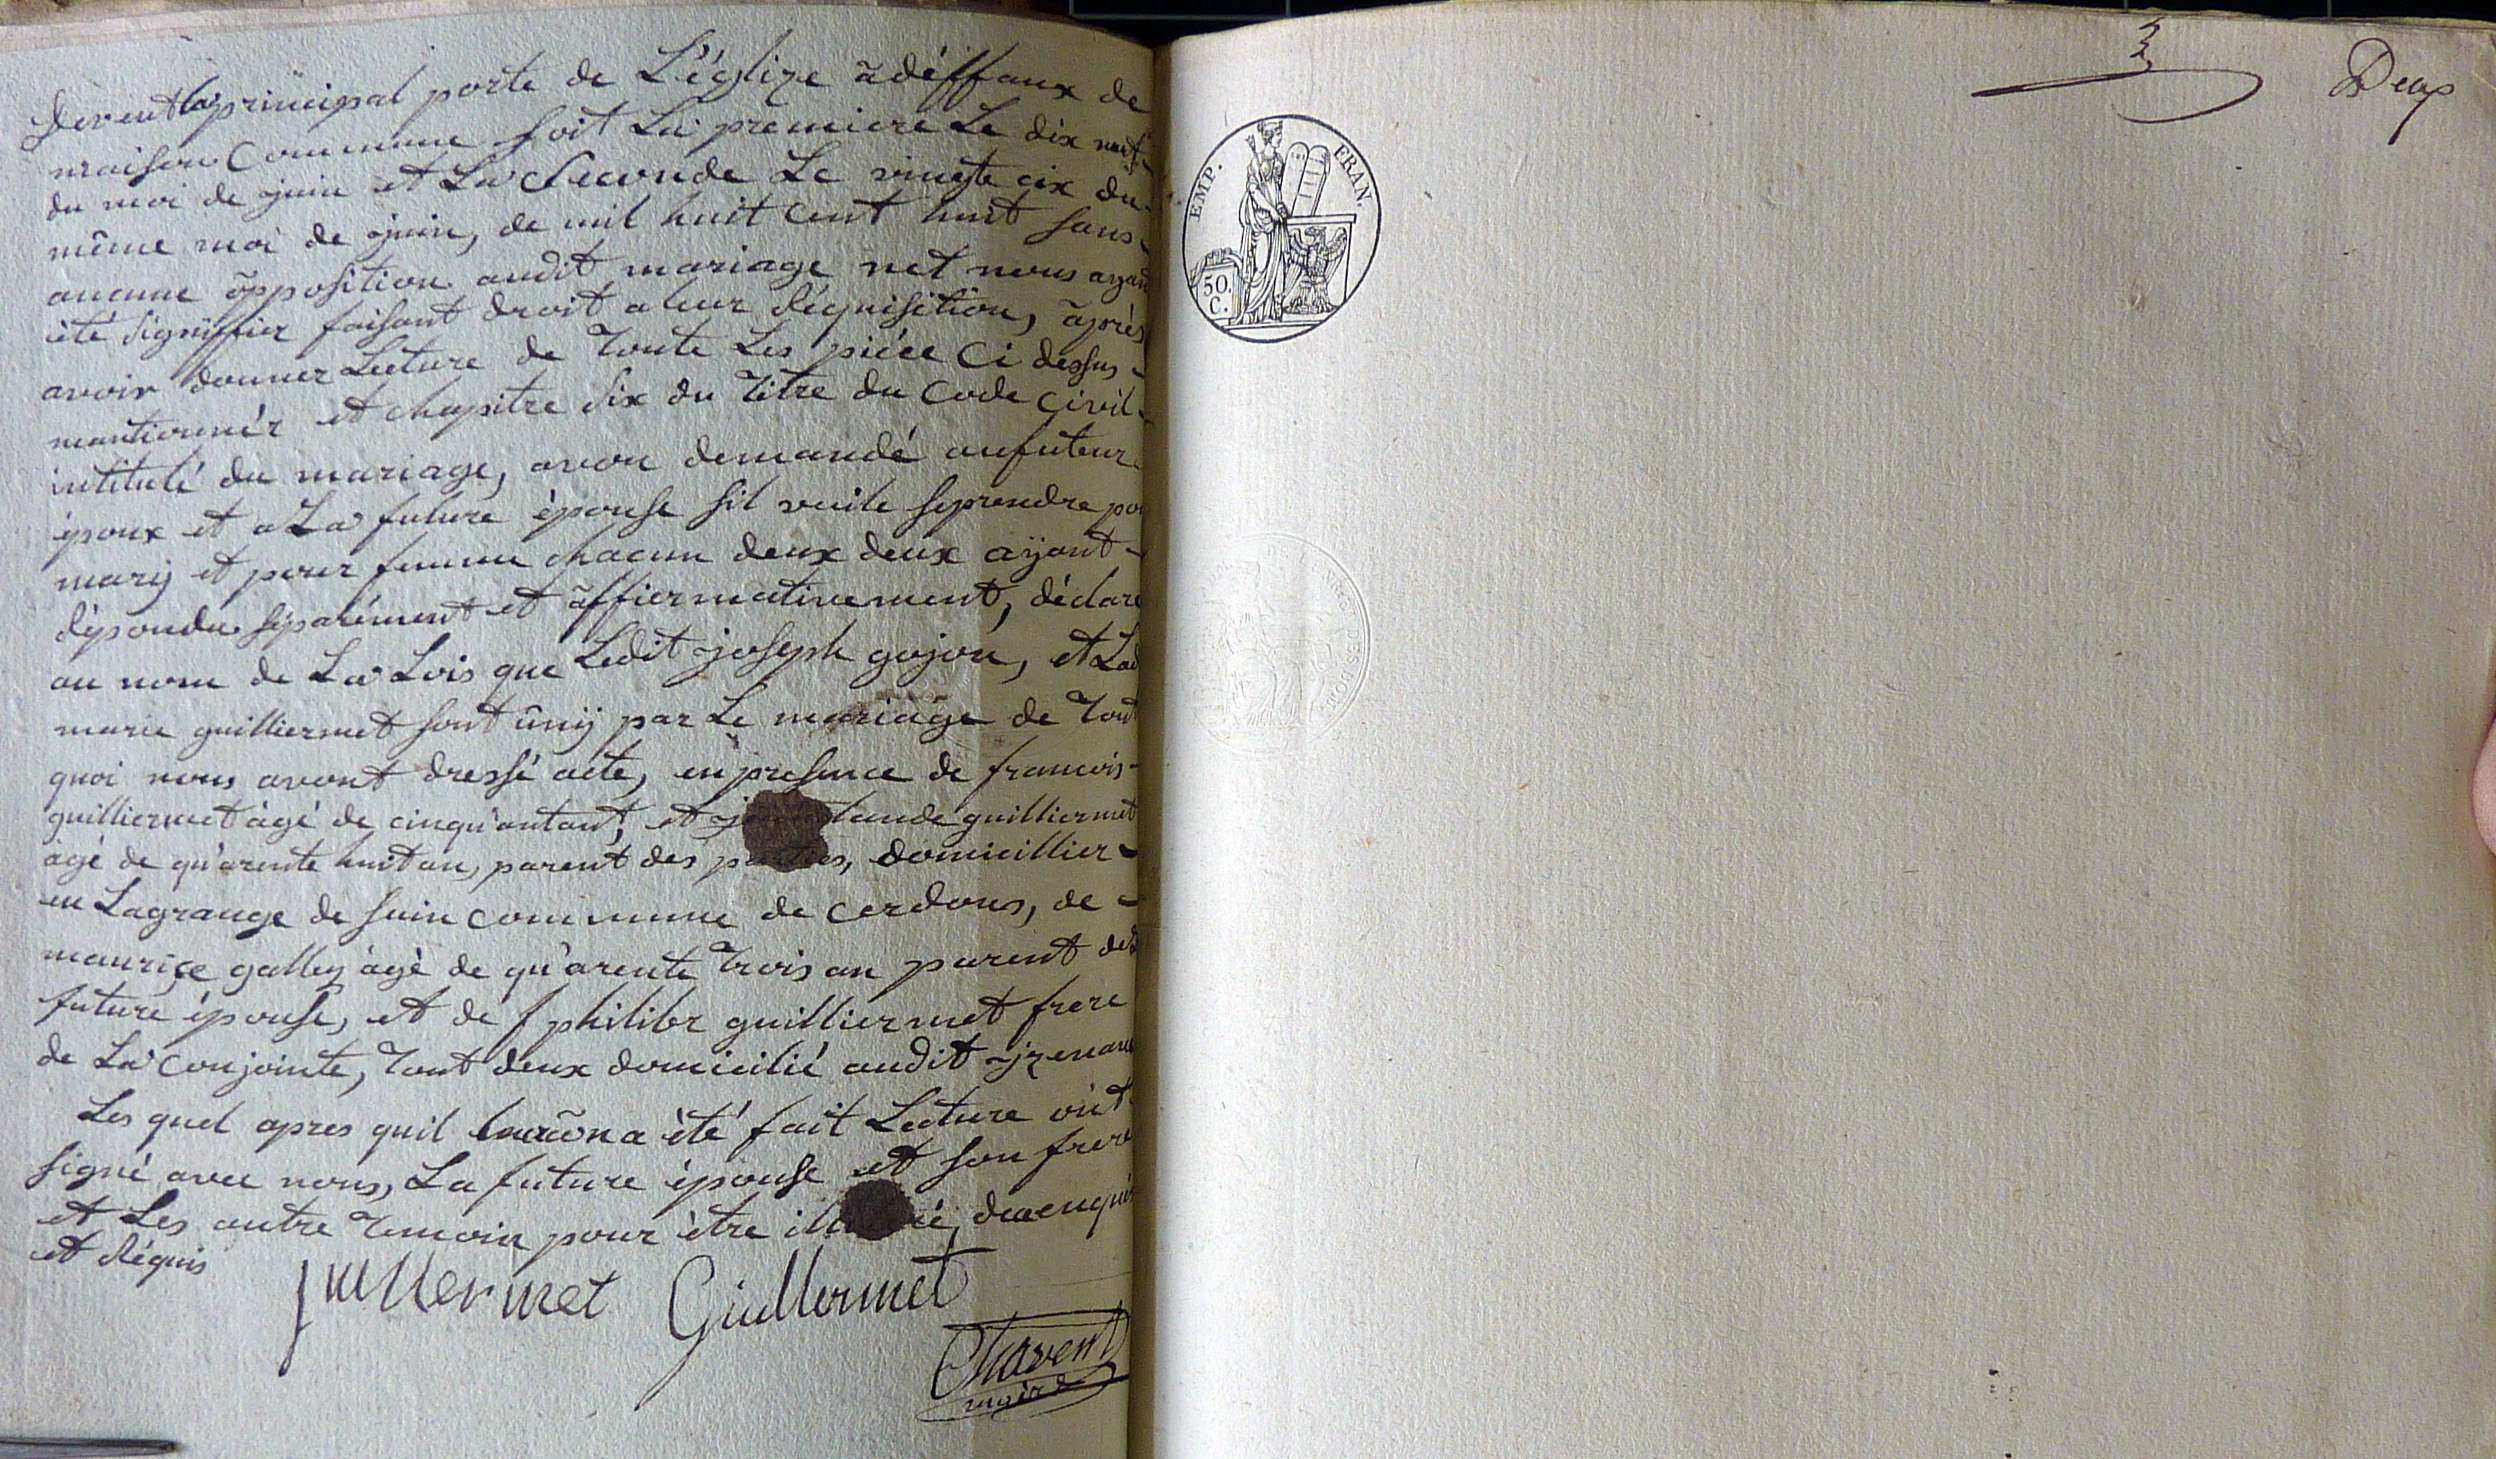 devent la principal porte de L'églize à déffaux de
maison Commune soit La premiere Le dix neuf
du moi de juin et La Seconde Le vingte cix du
même moi de juin, de mil huit cent huit sans
aucune õpposition audit mariage net nous ayant
été Signiffier faisant droit a leur Réquisition, aprés
avoir donner Lecture de Toute Les piéce Ci dessus
mantionnér et chapitre Six du Titre du Code Civil
intitulé du mariage, avon demandé au futeur
époux et a La future épouse sil veule seprendre
mary et pour femme chacun deux deux aÿant
Répondu séparément et affiermativement, déclare
au nom de La Lois que Ledit joseph gojon, et
marie guilliermet sont ûnÿ par Le mariage de Tout
quoi nous avont dressé acte, en presence de francois
guilliermet àgé de cinqu'antant, et guilliermet
àgé de qu'arente huit an, parent des parties, domicillier
en Lagrange de suin commune de cerdons, de
maurice galley àgé de qu'arente Trois an parent de
future épouse, et de philibr guilliermet frere
de La Conjointe, Tout deux domicilié audit
Les quel apres quil a été fait Lecture ont
signé avec nous, La future épouse et son frere
et Les autre Temoin pour être
et Réquis
guillermet Guillermet
Chavent
maire
EMP. FRAN.
50.
C.